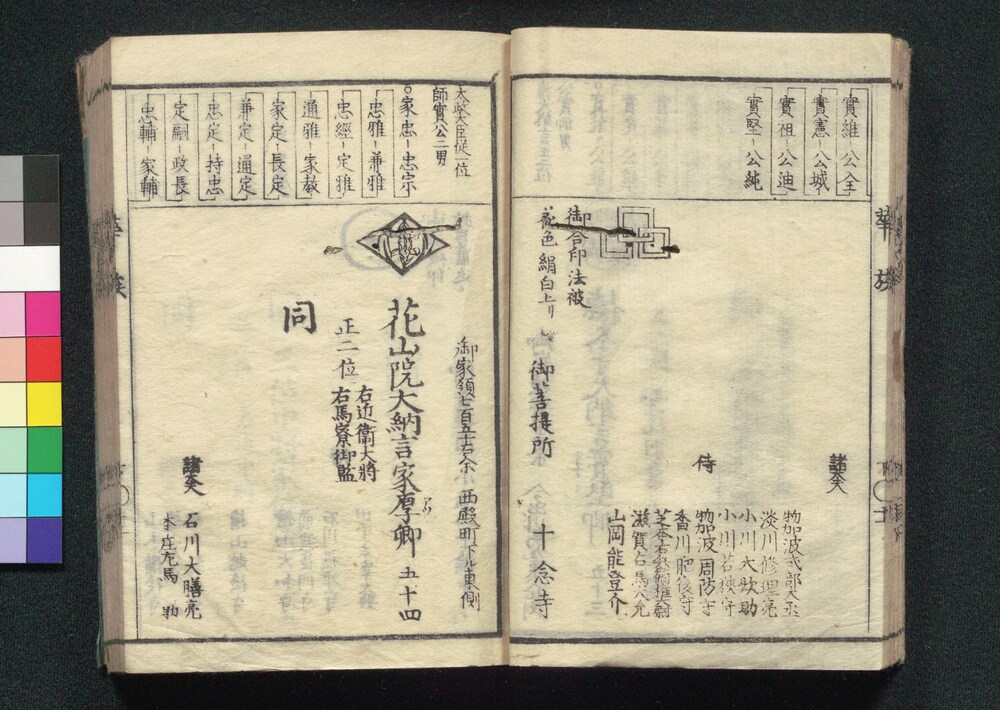 實維 公全
實憲 公城
實祖 公迪
實堅 公純
諸大夫
物加波式部大丞
淡川修理亮
小川大炊助
小川若狭守
物加波周防守
香川肥後守
滋賀右馬大允
山岡能登介
侍
御合印法被
花色絹白上リ
御菩提所
十念寺
華族
太政大臣従一位
師實公二男
家忠 忠宗
忠雅 兼雅
忠經 定雅
通雅 家教
家定 長定
兼定 通定
忠定 持忠
定嗣 政長
忠輔 家輔
御家領七百五十石余 西殿町下ル東側
花山院大納言家厚卿 五十四
正二位
右近衛大將
右馬寮御監
同
諸大夫
石川大膳亮
本庄左馬
華族